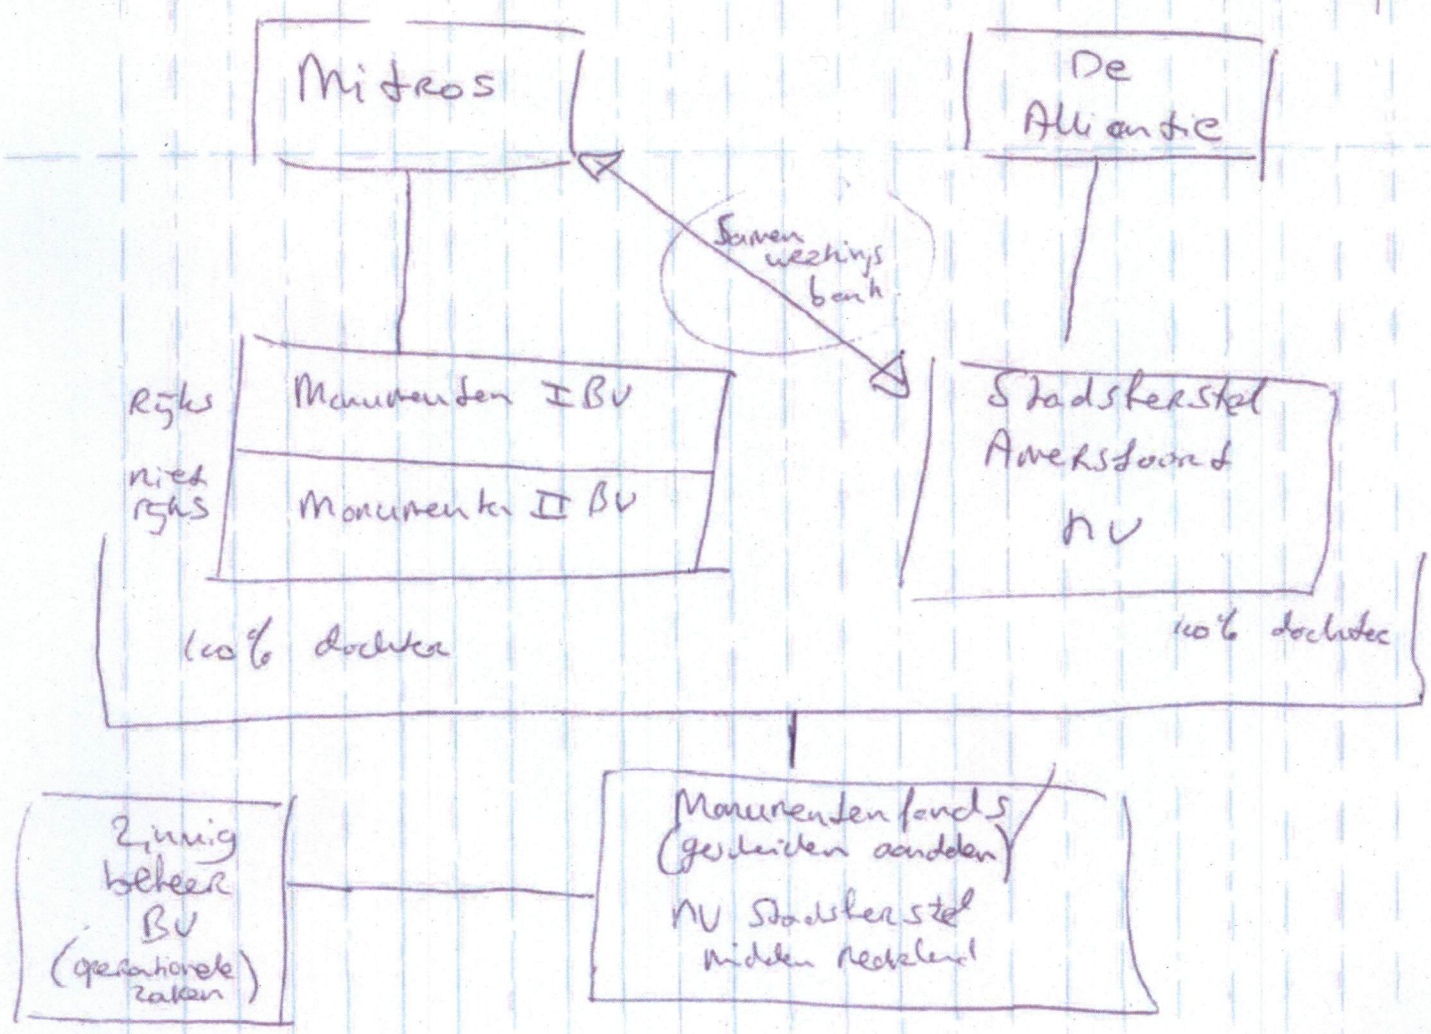 Mitros
De
Alliantie
Samen
werkings
bank
Rijks
Monumenten I BV
niet
rijks
Monumenten II BV
Stadsherstel
Amersfoort
NV
100% dochter
100% dochter
Zinnig
beheer
BV
(operationele
zaken)
Monumentenfonds
(gescheiden aandelen)
NV Stadsherstel
midden Nederland